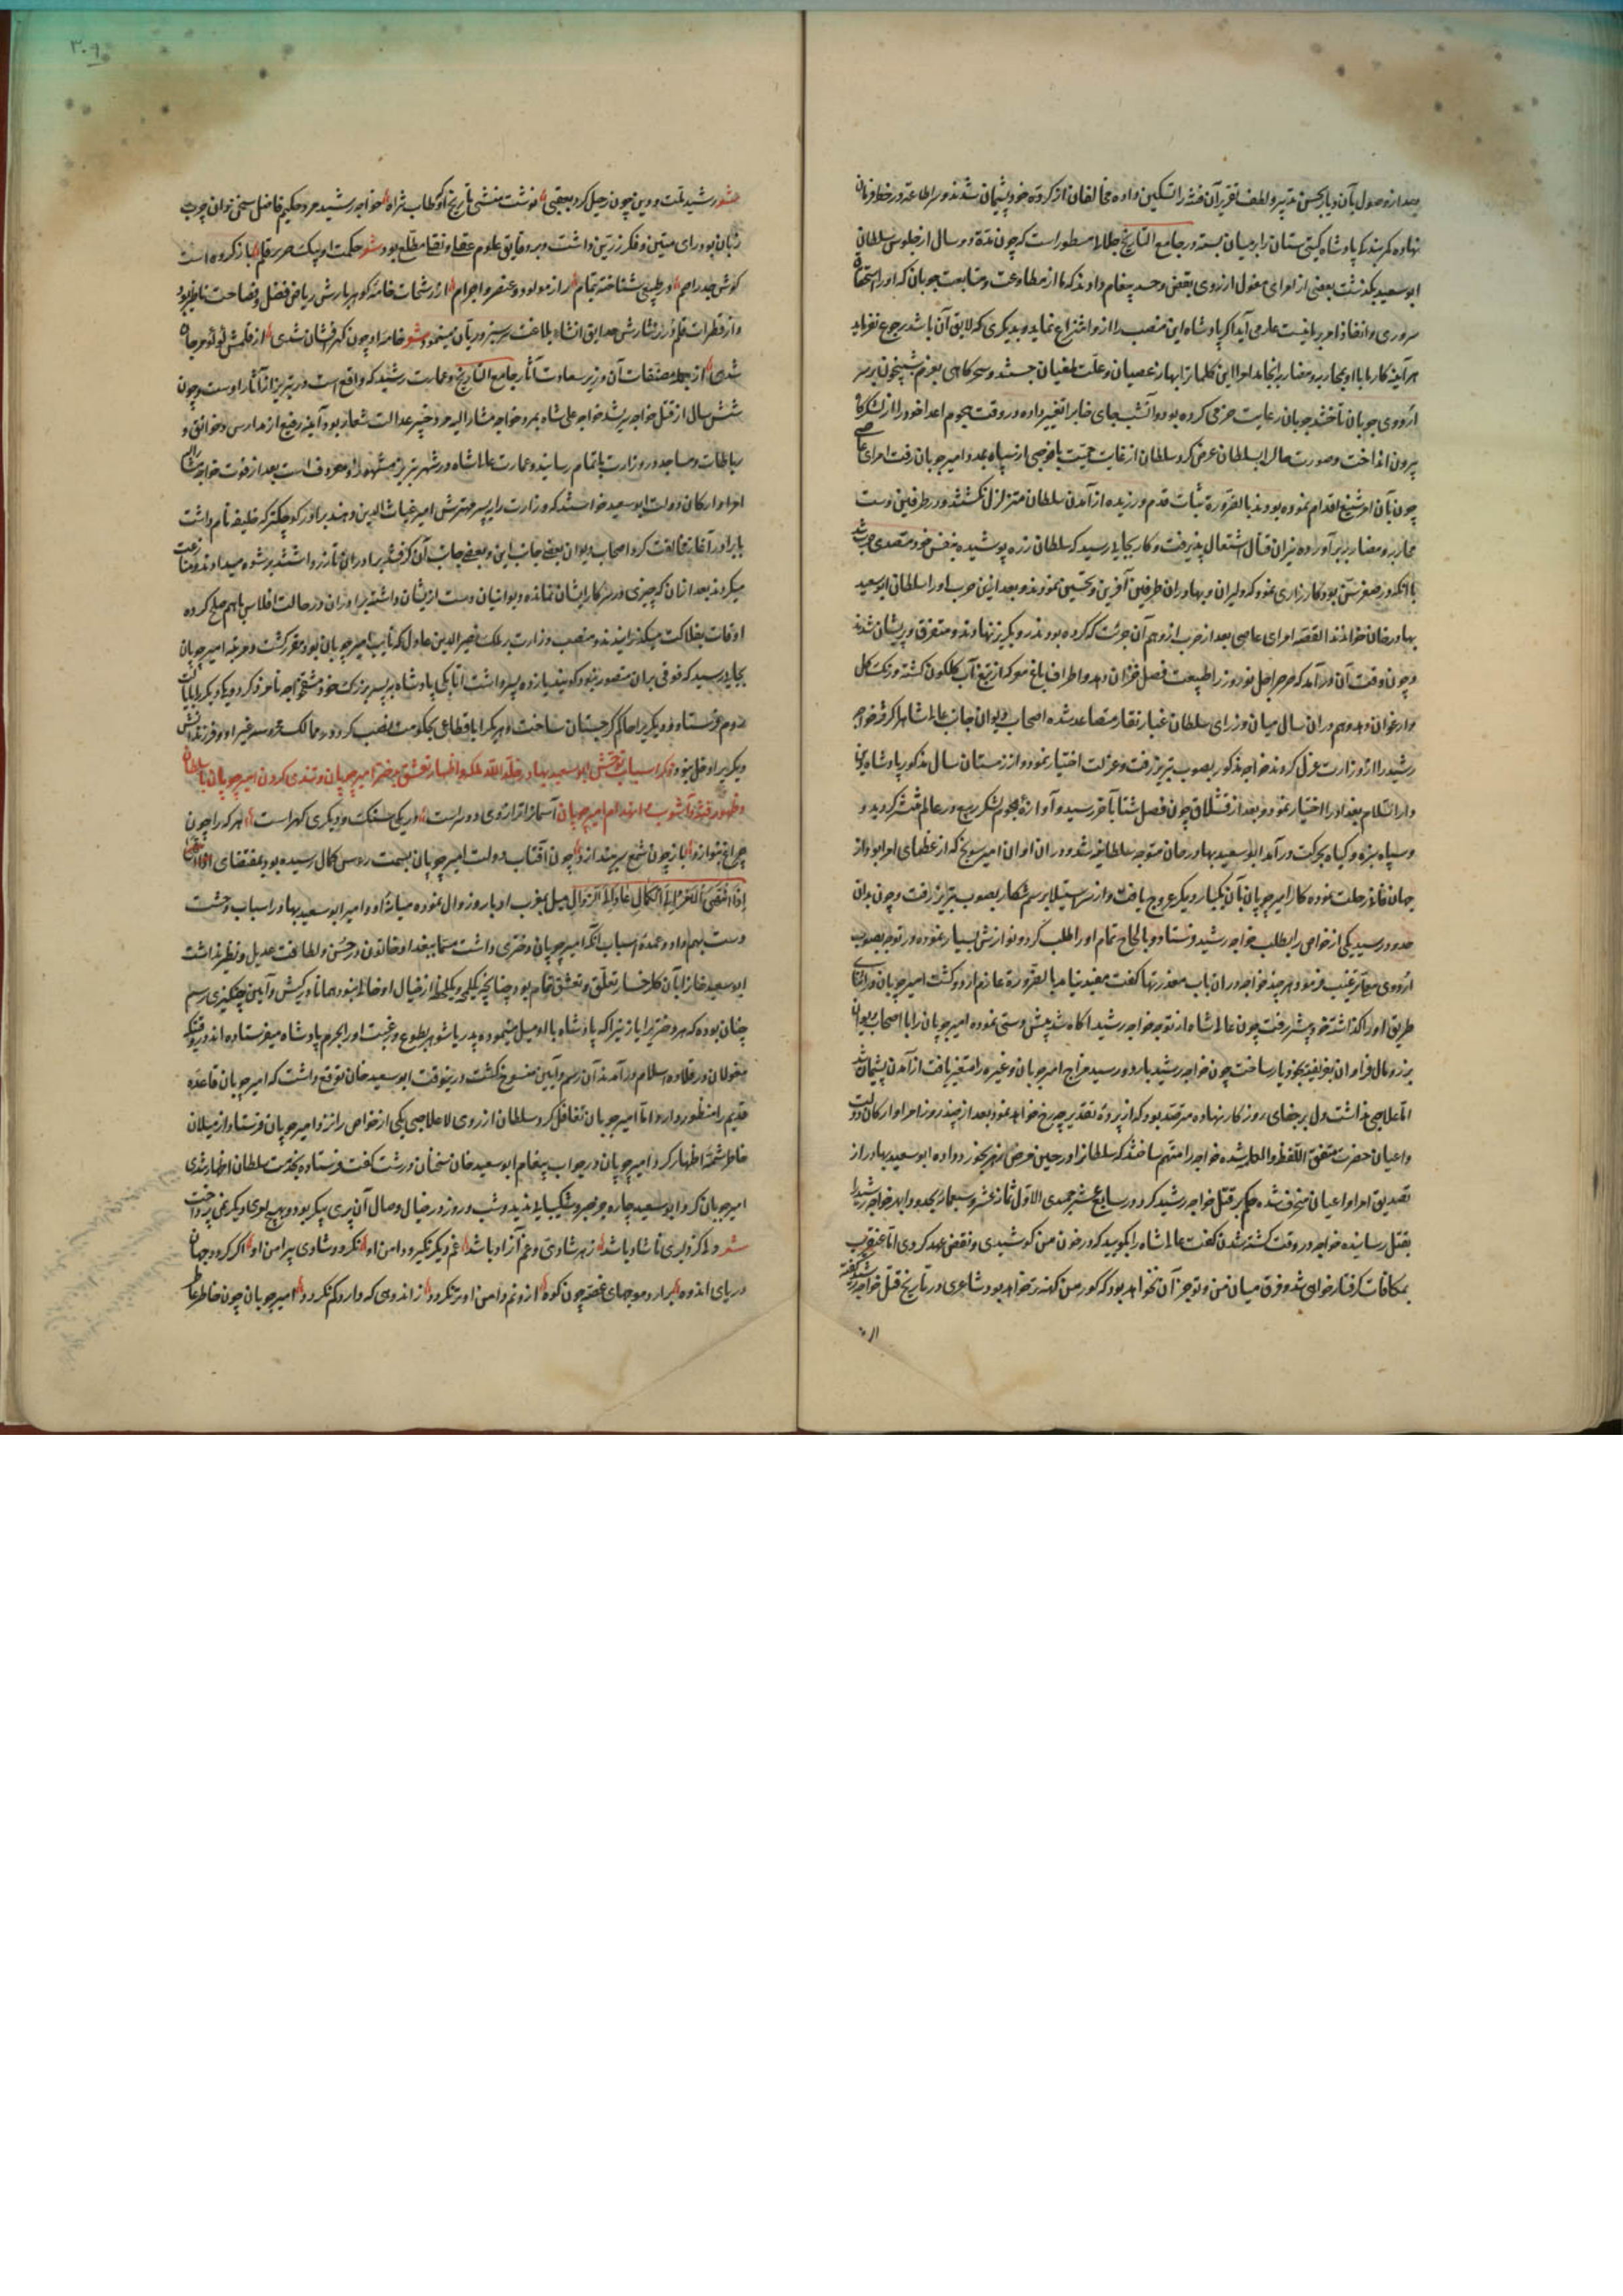 بعد از وصول بآن دیار بحسن تدبیر و لطف تقریر آن فتنه را تسکین داده مخالفان از کرده خود پشیمان شدند و سر اطاعت در خط فرمان
نهاده کمر بندگی پادشاه گیتی ستان را بر میان بسته در جامع التاریخ جلالی مسطور است که چون مدة دو سال از جلوس سلطان
ابو سعید بگذشت بعضی از امرای مغول از روی بغض و حسد پیغام دادند که ما از مطاوعت و متابعت چوبان که او را استحقاق
سروری و انفاذ امر و نیست عار می آید اگر پادشاه این منصب را از و انتزاع نماید و بدیگری که لایق آن باشد رجوع نفرماید
هر آینه کار ما با او بمحاربه و مضاربه انجامد امرا این کلمات را بهانه عصیان و علت طغیان جستند و سحرگاهی بعزم شبیخون بر سر
اردوی چوبان تاختند چوبان رعایت حزمی کرده بود و آنشب جای خابرا تغییر داده در وقت هجوم اعدا خود را از لشکرگاه
بیرون انداخت و صورت حال را بسلطان عرض کرد سلطان از غایت حمیت با فوجی از سپاه بمدد امیر چوبان رفت امرای عاصی
چون بآن امر شنیع اقدام نموده بودند بالضرورة ثبات قدم ورزیده از آمدن سلطان متزلزل نگشتند و از طرفین دست
بمحاربه و مضاربه برآورده نیران قتال اشتعال پذیرفت و کار بجایی رسید که سلطان زره پوشیده بنفس خود متصدی حرب شد
با آنکه در صغر سن بود کارزاری نمود که دلیران و بهادران طرفین آفرین و تحسین نمودند و بعد ازین حرب او را سلطان ابو سعید
بهادر خان خواندند القصه امرای عاصی بعد از حرب از وهم آن جرئت که کرده بودند رو بگریز نهادند و متفرق و پریشان شدند
و چون وقت آن درآمد که صرصر اجل نوروز را طبیعت فصل خزان دهد و اطراف باغ معرکه از تیغ آب گلگون گشته و رنگ گل
و ارغوان دهد و هم در آن سال میان وزرای سلطان غبار نقار متصاعد شده اصحاب دیوان جانب علیشاه را گرفته خواجه
رشید را از وزارت عزل کردند خواجه مذکور بصوب تبریز رفت و عزلت اختیار نمود و در زمستان سال مذکور پادشاه یورش
دار السلام بغداد را اختیار نمود و بعد از قشلاق چون فصل شتا بآخر رسید و آوازه هجوم لشکر ربیع در عالم منتشر گردید و
سپاه سبزه و گیاه بحرکت درآمد ابو سعید بهادر خان متوجه سلطانیه شد و در آن اوان امیر سونج که از عظمای امرا بود از
جهان فانی رحلت نموده کار امیر چوبان بآن یکبار دیگر عروج یافت و از سر استیلا برسم شکار بصوب تبریز رفت و چون بدان
حدود رسید یکی از خواص را بطلب خواجه رشید فرستاد و بالحاح تمام او را طلب کرد و نوازش بسیار نموده در توجه بصوب
اردوی معلی ترغیب فرمود و هر چند خواجه در آن باب معذرتها گفت مفید نیامد بالضرورة عازم اردو گشت امیر چوبان در اثنای
طریق او را گذاشته خود پیشتر رفت چون علیشاه از توجه خواجه رشید آگاه شد پیش دستی نموده امیر چوبان را با اصحاب دیوان
بزر و مال فراوان فریفته بخود یار ساخت چون خواجه رشید باردو رسید مزاج امیر چوبان و غیره را متغیر یافت از آمدن پشیمان شد
اما علاجی نداشت دل بر جفای روزگار نهاده مترصد بود که از پرده تقدیر چه رخ خواهد نمود بعد از چند روز امرا و ارکان دولت
و اعیان حضرت متفق اللفظ والکلمه شده خواجه را متهم ساختند که سلطان را در حین مرض زهر بخورد داده ابو سعید بهادر از
تصدیق امرا و اعیان منحرف شده حکم بر قتل خواجه رشید کرد در سابع عشر جمیدی الاول ثمان عشر و سبعمایه بحدود ابهر خواجه رشید را
بقتل رسانیده خواجه در وقت کشته شدن گفت علیشاه را بگویید که در خون من کوشیدی و نقض عهد کردی اما عنقریب
بمکافات گرفتار خواهی شد و فرق میان من و تو جز آن نخواهد بود که گور من کهنه تر خواهد بود شاعری در تاریخ قتل خواجه رشید گفته
۳۰۹
شعر رشید ملت و دین چون رحیل کرد بعقبی نوشت منشی تاریخ او که طاب ثراه خواجه رشید مرد حکیم فاضل سخن دان چرب
زبان بود رای متین و فکر رزین داشت و بر دقایق علوم عقلی و نقلی مطلع بود شعر حکمت او پیک صریر قلم باز کرده است
گوش جذر اصم در طبیعی شناخته بتمام راز مولود و عنصر و اجرام از رشحات خامه گوهر بارش ریاض فضل و فصاحت ناظر بود
و از قطرات قلم درر نثارش حدایق انشاء بلاغت سرسبز و ریان مینمود شعر خامه او چون گهر فشان شدی از قلمش لؤلؤ و مرجان
شدی از جمله مصنفات آن وزیر سعادت آثار جامع التاریخ و عمارت رشیدیه که واقع است در تبریز از آثار اوست و چون
شش سال از قتل خواجه رشید خواجه علی شاه بمرد و خواجه مشار الیه مرد خیر عدالت شعار بود و ابنیه رفیع از مدارس و خوانق و
رباطات و مساجد در وزارت باتمام رسانید و عمارت علیشاه در شهر تبریز مشهور و معروف است بعد از فوت خواجه مشار الیه
امرا و ارکان دولت ابو سعید خواستند که وزارت را بپسر مهترش امیر غیاث الدین دهند برادر کوچکتر که خلیفه نام داشت
با برادر آغاز مخالفت کرد اصحاب دیوان بعضی جانب این و بعضی جانب آن گرفتند برادران تا زر داشتند برشوه میدادند و منازعت
میکردند بعد از آن که چیزی در سرکار ایشان نمانده دیوانیان دست از ایشان داشتند برادران در حالت افلاس باهم صلح کرده
اوقات بفلاکت میگذرانیدند و منصب وزارت بر ملک نصیر الدین عادل که نایب امیر چوبان بود مقرر گشت و مرتبه امیر چوبان
بجایی رسید که فوقی بر آن متصور نبود گویند یازده پسر داشت اتابکی پادشاه بپسر بزرگ خود دمشق خواجه نامزد کرد و یکی دیگر را بایالت
روم فرستاد و دیگری را حاکم گرجستان ساخت و هر یکرا باقطاعی بحکومت نصب کرد و در ممالک محروسه غیر او و فرزندانش
دیگریرا دخل نبود ذکر اسباب توحش ابو سعید بهادر خلد الله ملکه و اظهار تعشق بدختر امیر چوبان و تندی کردن امیر چوبان با سلطان
و ظهور فتنه و آشوب و انهدام امیر چوبان آسمان را ترازوی دو سر است در یکی سنگ و دیگری گهر است هر که را چون
چراغ بنوازد باز چون شمع سر بیندازد چون آفتاب دولت امیر چوبان بسمت رءوس کمال رسیده بود بمقتضای
اِذَا انْتَهیَ الْاَمْرُ اِلَی الْکَمَالِ عَادَ اِلَی الزَّوَالِ میل بمغرب ادبار و زوال نموده میان او و امیر ابو سعید بهادر اسباب وحشت
دست بهم داد و عمده اسباب آنکه امیر چوبان دختری داشت مسماة ببغداد خاتون در حسن و لطافت عدیل و نظیر نداشت
ابو سعید خان را بآن گلرخسار تعلق و تعشق تمام بود چنانچه یکلمح و یکلحظه از خیال او خالی نبود همانا در کیش و آیین چنگیزی رسم
چنان بوده که هر دختر را یا زنیرا که پادشاه باو میل مینموده پدر یا شوهر بطوع و رغبت او را بحرم پادشاه میفرستاده اند و وقتیکه
مغولان در قلاده اسلام درآمدند آن رسم و آیین منسوخ گشت در ینوقت ابو سعید خان توقع داشت که امیر چوبان قاعده
قدیم را منظور دارد اما امیر چوبان تغافل کرد سلطان از روی لاعلاجی یکی از خواص را نزد امیر چوبان فرستاد و از میلان
خاطر شمه اظهار کرد امیر چوبان در جواب پیغام ابو سعید خان سخنان درشت گفت فرستاده بخدمت سلطان اظهار تندی
امیر چوبان کرد ابو سعید چاره جز صبر و شکیبایی ندید و شب و روز در خیال وصال آن پری پیکر بود و بهیچ امری دیگر نمی پرداخت
شعر دلا گر دلبری تا شاد باشد ز هر شادی و غم آزاد باشد غم دیگر نگیرد دامن او نگردد شادی پیرامن او اگر گردد جهان
دریای اندوه برارد موجهای غصه چون کوه از و نم دامن او تر نگردد ز اندوهی که دارد کم نگردد امیر چوبان چون خاطر